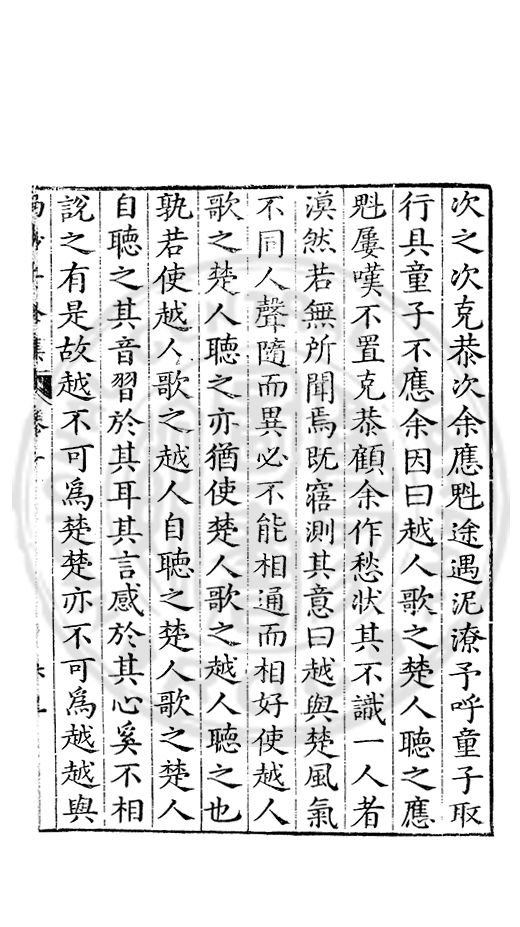 次之次克恭次余應魁途遇泥潦予呼童子取
行具童子不應余因曰越人歌之楚人聽之應
魁屢嘆不置克恭顧余作愁狀其不識一人者
漠然若無所聞焉既寤測其意曰越與楚風氣
不同人聲隨而異必不能相通而相好使越人
歌之楚人聽之亦猶使楚人歌之越人聽之也
孰若使越人歌之越人自聽之楚人歌之楚人
自聽之其音習於其耳其言感於其心奚不相
說之有是故越不可為楚楚亦不可為越越與